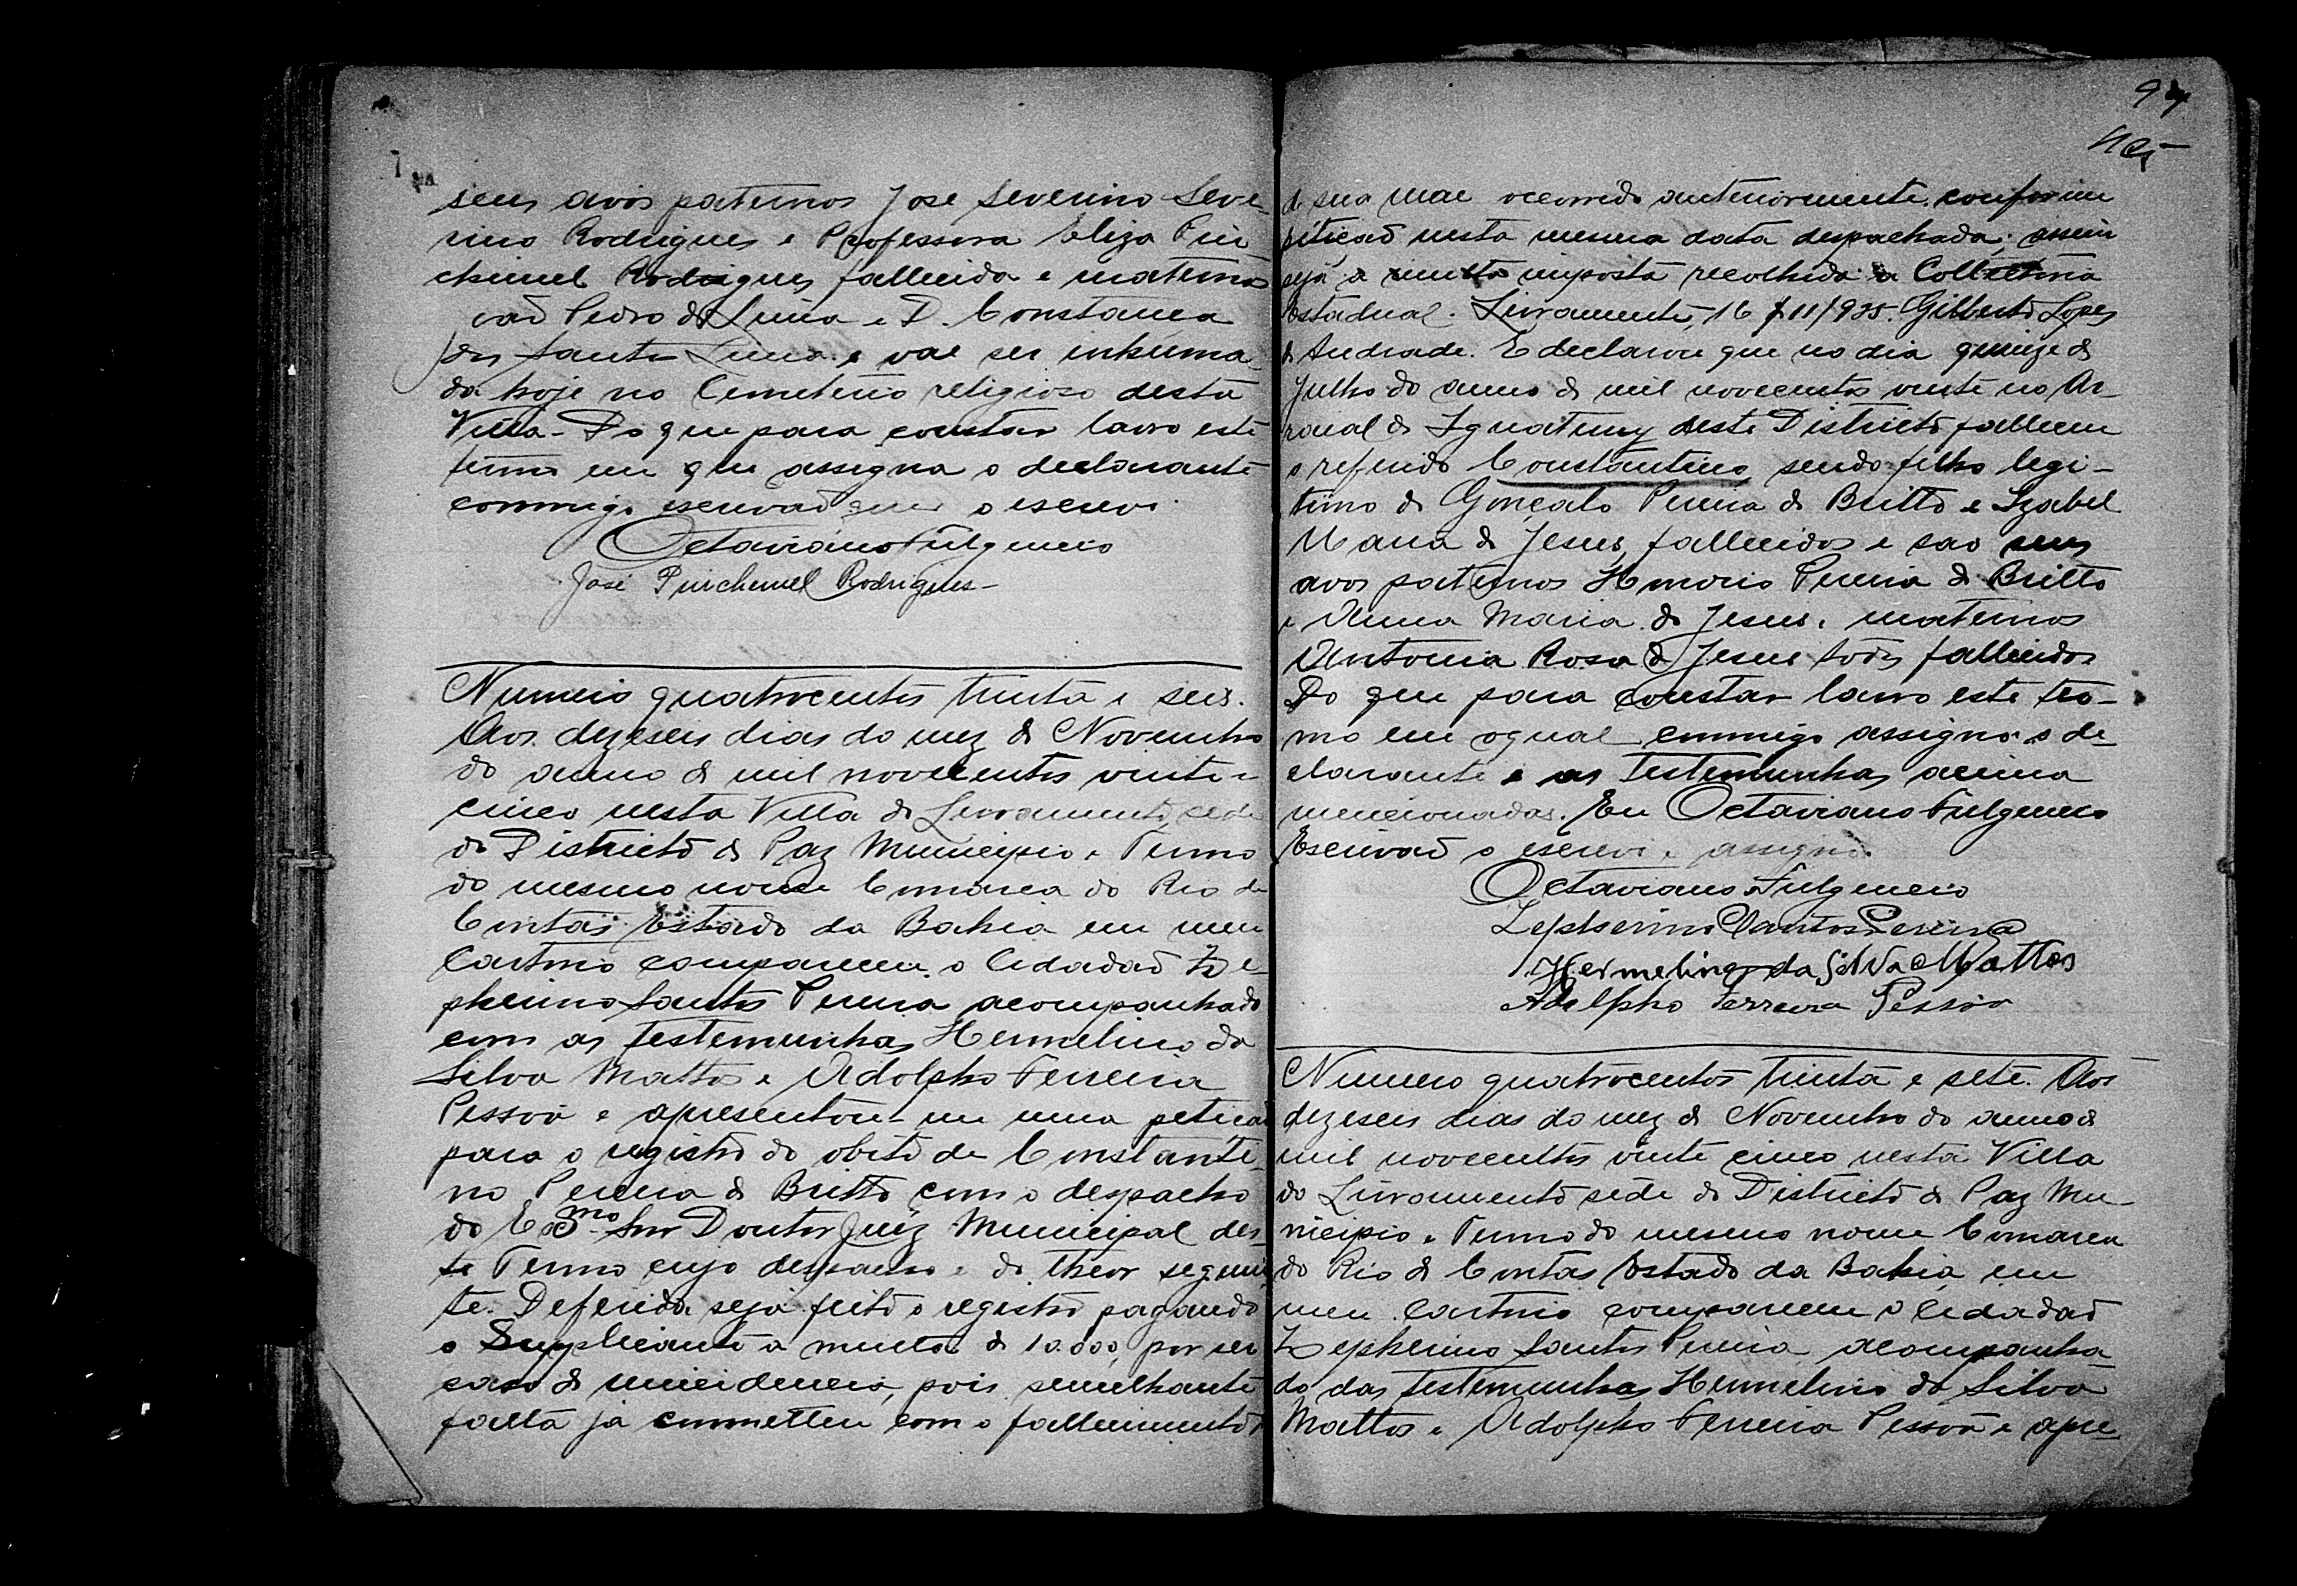 seus avós paternos José Severino Seve-
rino Rodrigues e Professora Eliza Pin
chemel Rodrigues, fallecida e maternos
Pedro de Lima e D. Constança
dos Santos Lima e vae ser inhuma
da hoje no Cemeterio religioso desta
Villa. Do que para constar lavro este
termo em que assigna o declarante
commigo escrivão que o escrevi.
Octaviano Fulgencio
José Pinchemel Rodrigues
Numero quatrocentos trinta e seis.
Aos dezeseis dias do mez de Novembro
do anno de mil novecentos vinte e
cinco nesta Villa do Livramento, sede
do Districto de Paz Municipio e Termo
do mesmo nome Comarca do Rio de
Contas Estado da Bahia em meu
Cartorio compareceu o Cidadão Ze-
pherino Santos Pereira acompanhado
com as testemunhas Hermelino da
Silva Mattos e Adolpho Ferreira
Pessôa e apresentou-me uma petição
para o registro do obito de Constanti-
no Pereira de Britto com o despacho
do Snr Doutor Juiz Municipal des-
te Termo cujo despacho é do theor seguin
te. Deferida seja feito o registro pagando
o Suppliciante a multa de 10.000, por ser
caso de pois semelhante
falta já commetteu com o fallecimento
de sua mae occorrido anteriormente, conforme
petição nesta mesma data despachada; assim
seja a multa imposta recolhida a Collectoria
Estadual. Livramento, 16/11/925. Gilberto Lopes
de Andrade. E declarou que no dia quinze de
Julho do anno de mil novecentos vinte no Ar-
raial de Iguatemy deste Districto falleceu
o referido Constantino sendo filho legi-
timo de Gonçalo Pereira de Britto e Izabel
Maria de Jesus, fallecidos e são seus
avos paternos Honorio Pereira de Britto
e Anna Maria de Jesus, maternos
Antonia Rosa de Jesus todos fallecidos
Do que para constar lavro este ter-
mo em o qual commigo assigna o de-
clarante e as testemunhas acima
mencionadas. Eu Octaviano Fulgencio
Escrivão o escrevi e assigno.
Octaviano Fulgencio
Zephserino Santos Pereira
Hermelino da Silva Mattos
Adolpho Ferreira Pessôa
Numero quatrocentos trinta e sete. Aos
dezeseis dias do mez de Novembro do anno de
mil novecentos vinte cinco nesta Villa
do Livramento sede do Districto de Paz Mu-
nicipio e Termo do mesmo nome Comarca
do Rio de Contas Estado da Bahia, em
meu Cartorio compareceu o Cidadão
Zepherino Santos Pereira, acompanha-
do das testemunhas Hermelino da Silva
Mattos e Adolpho Ferreira Pessôa e apre-